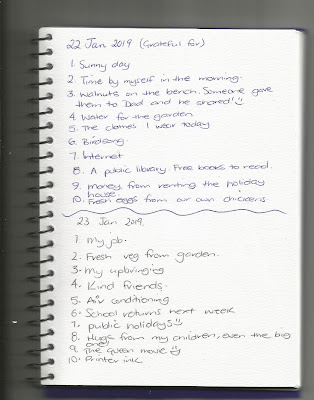 22 Jan 2019 (Grateful for)
1. Sunny day
2. Time by myself in the morning.
3. Walnuts on the bench. Someone gave
them to Dad and he shared!
4. Water for the garden
5. The clothes I wear today
6. Birdsong
7. Internet
8. A public library. Free books to read.
9. money from renting the holiday
house.
10. Fresh eggs from our own chickens
23 Jan 2019.
1. My job.
2. Fresh veg from garden.
3. My upbringing
4. Kind friends.
5. Air conditioning
6. School returns next week
7. public holidays
8. Hugs from my children, even the big
one
9. The Queen movie
10. Printer ink